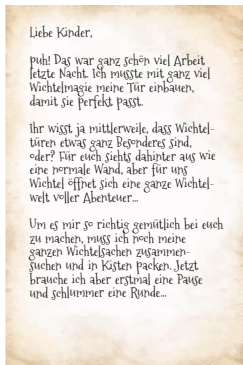 Liebe Kinder,
puh! Das war ganz schön viel Arbeit
letzte Nacht. Ich musste mit ganz viel
Wichtelmagie meine Tür einbauen,
damit sie perfekt passt.
Ihr wisst ja mittlerweile, dass Wichtel-
türen etwas ganz Besonderes sind,
oder? Für euch siehts dahinter aus wie
eine normale Wand, aber für uns
Wichtel öffnet sich eine ganze Wichtel-
welt voller Abenteuer...
Um es mir so richtig gemütlich bei euch
zu machen, muss ich noch meine
ganzen Wichtelsachen zusammen-
suchen und in Kisten packen. Jetzt
brauche ich aber erstmal eine Pause
und schlummer eine Runde...